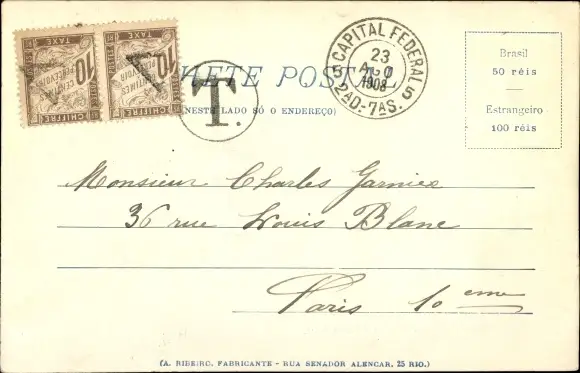 BILHETE POSTAL
(NESTE LADO SÓ O ENDEREÇO)
10 CENTIMES À PERCEVOIR
CHIFFRE TAXE
10 CENTIMES À PERCEVOIR
CHIFFRE TAXE
T.
CAPITAL FEDERAL
23
AGO
1908
5 2ª D.-7ª S. 5
Brasil
50 réis
Estrangeiro
100 réis
Monsieur Charles Garnier
36 rue Louis Blanc
Paris 10 eme
(A. RIBEIRO, FABRICANTE - RUA SENADOR ALENCAR, 25 RIO.)